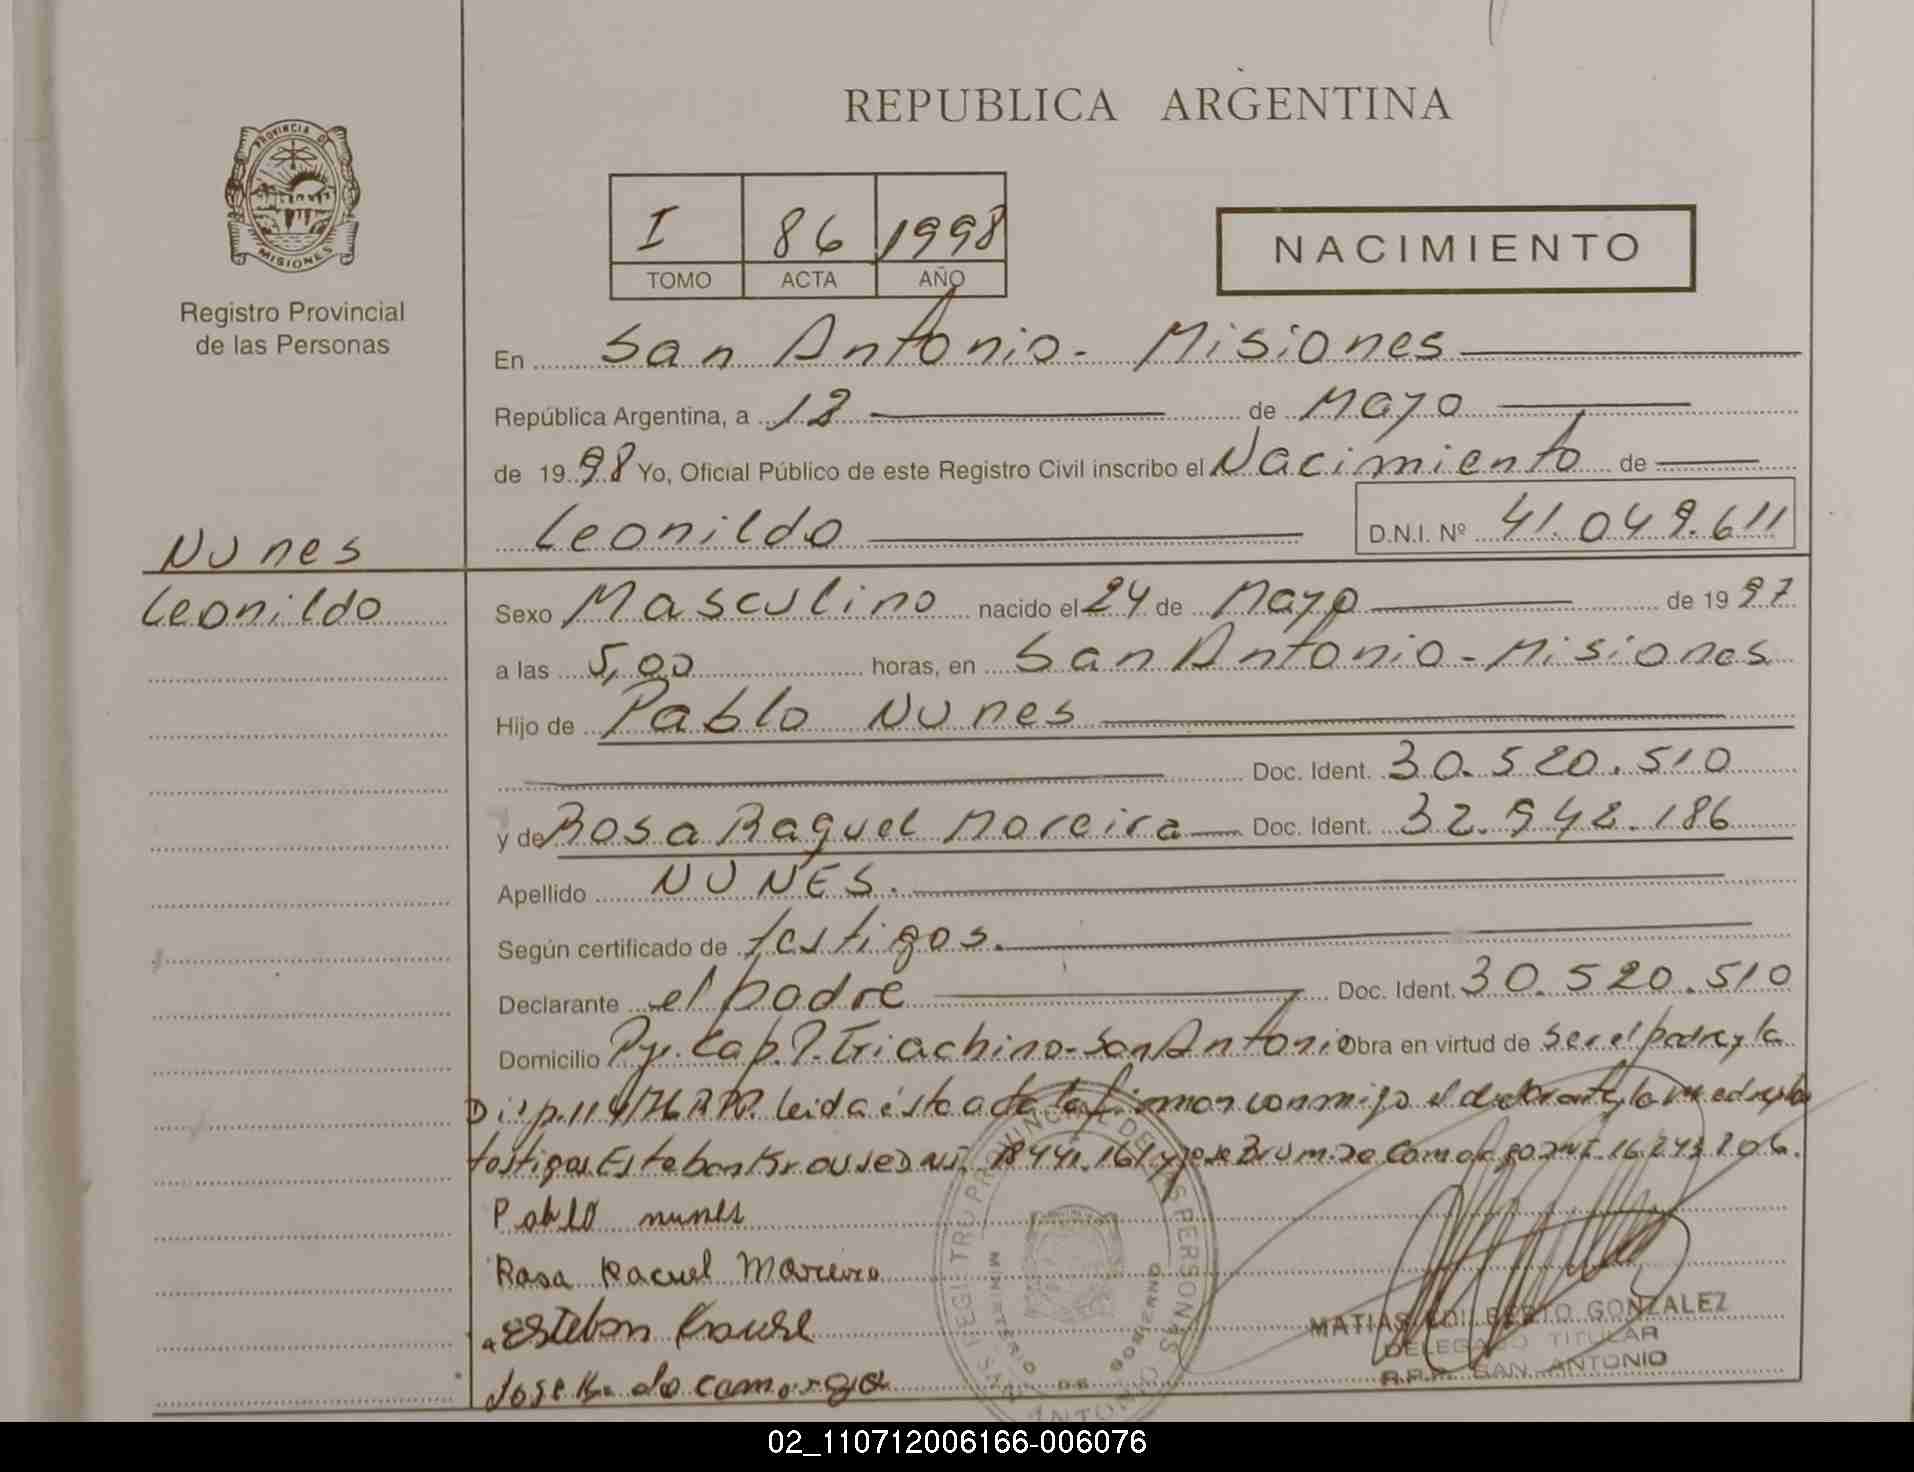 REPUBLICA ARGENTINA
PROVINCIA DE
MISIONES
Registro Provincial
de las Personas
I 86 1998
TOMO ACTA AÑO
NACIMIENTO
En San Antonio - Misiones
República Argentina, a 12 de Mayo
de 1998 Yo, Oficial Público de este Registro Civil inscribo el Nacimiento de
Leonildo D.N.I. Nº 41.049.611
Nunes
Leonildo
Sexo Masculino nacido el 24 de Mayo de 1997
a las 5,00 horas, en San Antonio - Misiones
Hijo de Pablo Nunes
Doc. Ident. 30.520.510
y de Rosa Raquel Moreira Doc. Ident. 32.942.186
Apellido NUNES.
Según certificado de testigos.
Declarante el padre Doc. Ident. 30.520.510
Domicilio San Antonio Obra en virtud de ser el padre y la
Disp. 114/76 R.P.P. leida ésta acta la firman conmigo el declarante, la madre y los
testigos Esteban Krause DNI. 18441.161 y Jose
Pablo nunes
Rosa Racuel Moreira
Esteban Krause
Jose
REGISTRO PROVINCIAL DE LAS PERSONAS
MINISTERIO DE GOBIERNO
SAN ANTONIO
MATIAS EDILBERTO GONZALEZ
DELEGADO TITULAR
R.P.P. SAN ANTONIO
02_110712006166-006076